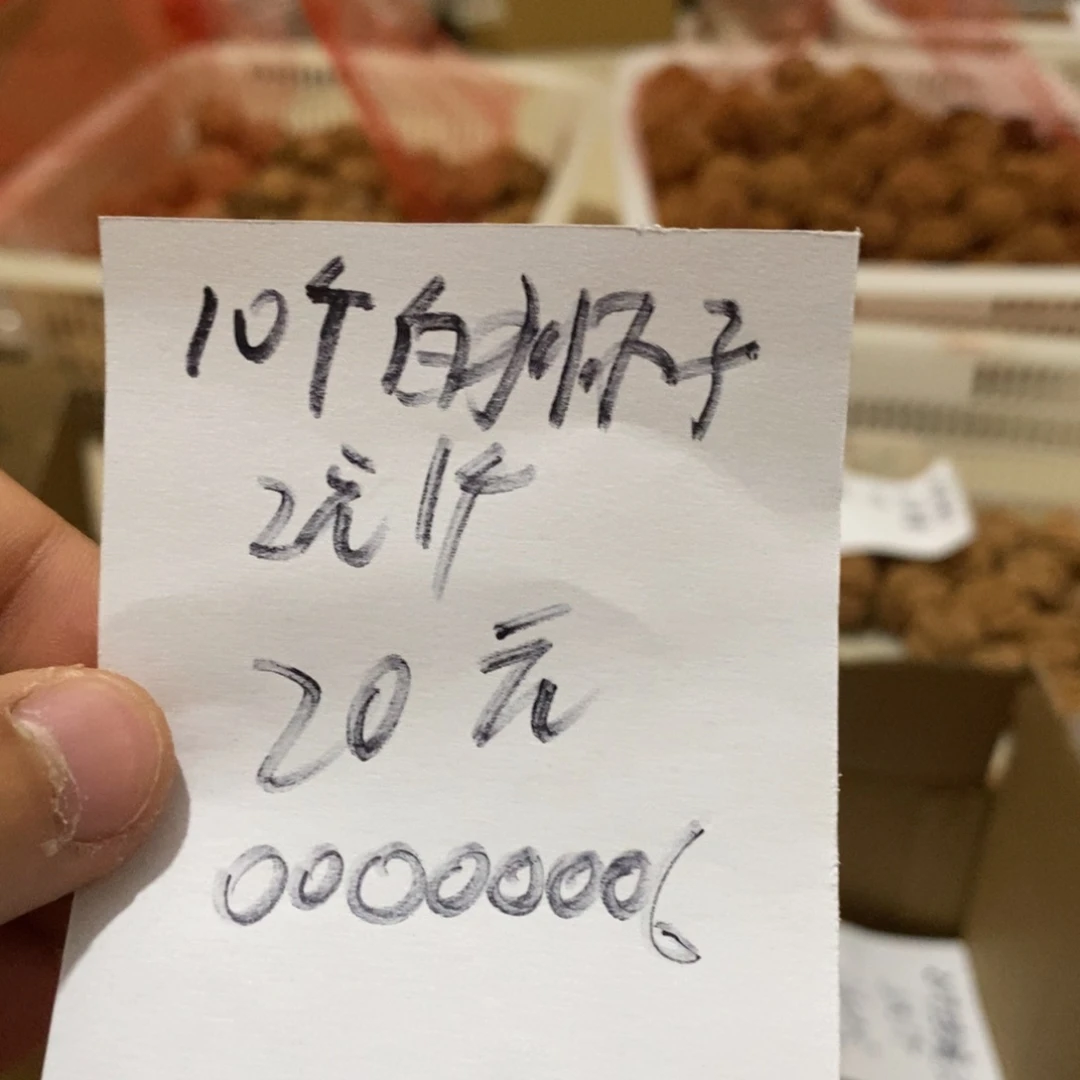 10个白色杯子
2元1个
20元
00000006